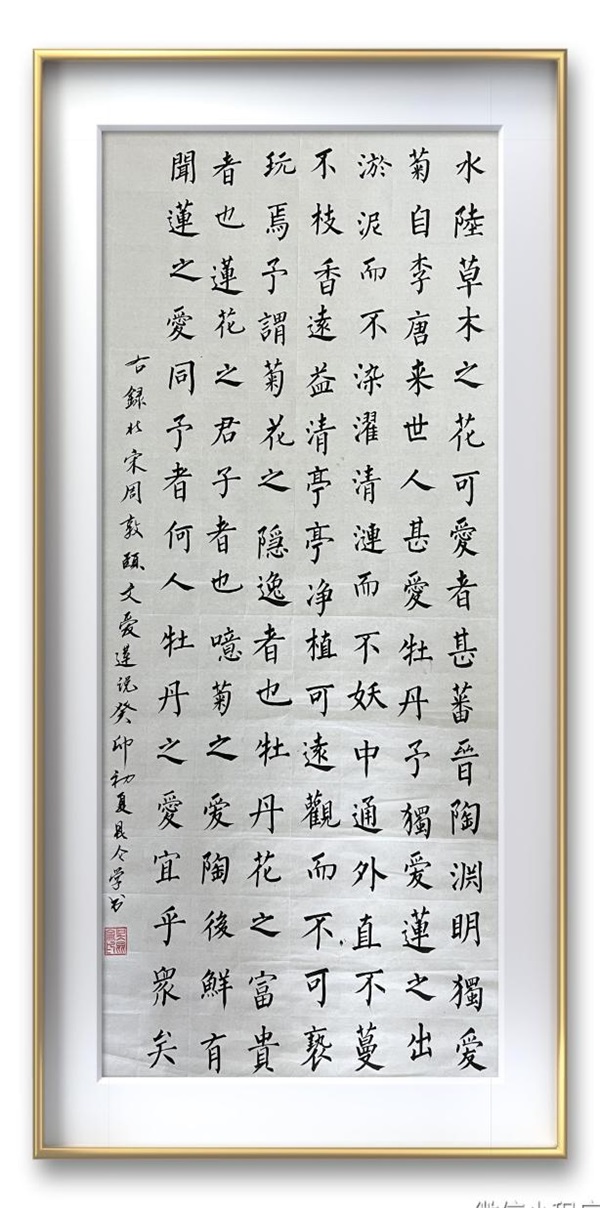 水陸草木之花可愛者甚蕃晉陶渊明獨爱
菊自李唐来世人甚愛牡丹予獨爱蓮之出
淤泥而不染濯清漣而不妖中通外直不蔓
不枝香遠益清亭亭净植可遠觀而不可褻
玩焉予謂菊花之隱逸者也牡丹花之富貴
者也蓮花之君子者也噫菊之爱陶後鮮有
聞蓮之愛同予者何人牡丹之愛宜乎衆矣
右録於宋周敦頤文爱蓮说癸卯初夏学书